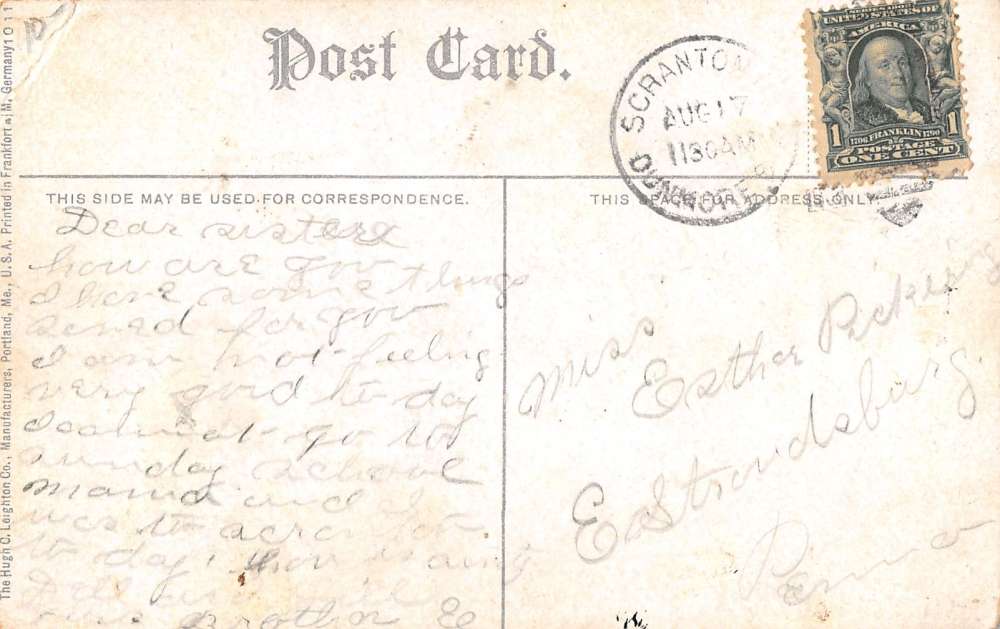 Post Card.
SCRANTON
AUG 17
1130 AM
DUNMORE
SERIES 1902
UNITED STATES OF
AMERICA
1 1706 FRANKLIN 1790 1
POSTAGE
ONE CENT
THIS SIDE MAY BE USED FOR CORRESPONDENCE.
THIS SPACE FOR ADDRESS ONLY
Dear sister
how are you
I have some things
send for you
I am not feeling
very good to day
I cannot go to
sunday school
mama and I
was to
to day. how is aunt
Brother E
Miss
Esther Pickering
E. Stroudsburg
Penna
The Hugh C. Leighton Co., Manufacturers, Portland, Me., U.S.A. Printed in Frankfort a/M, Germany 1011